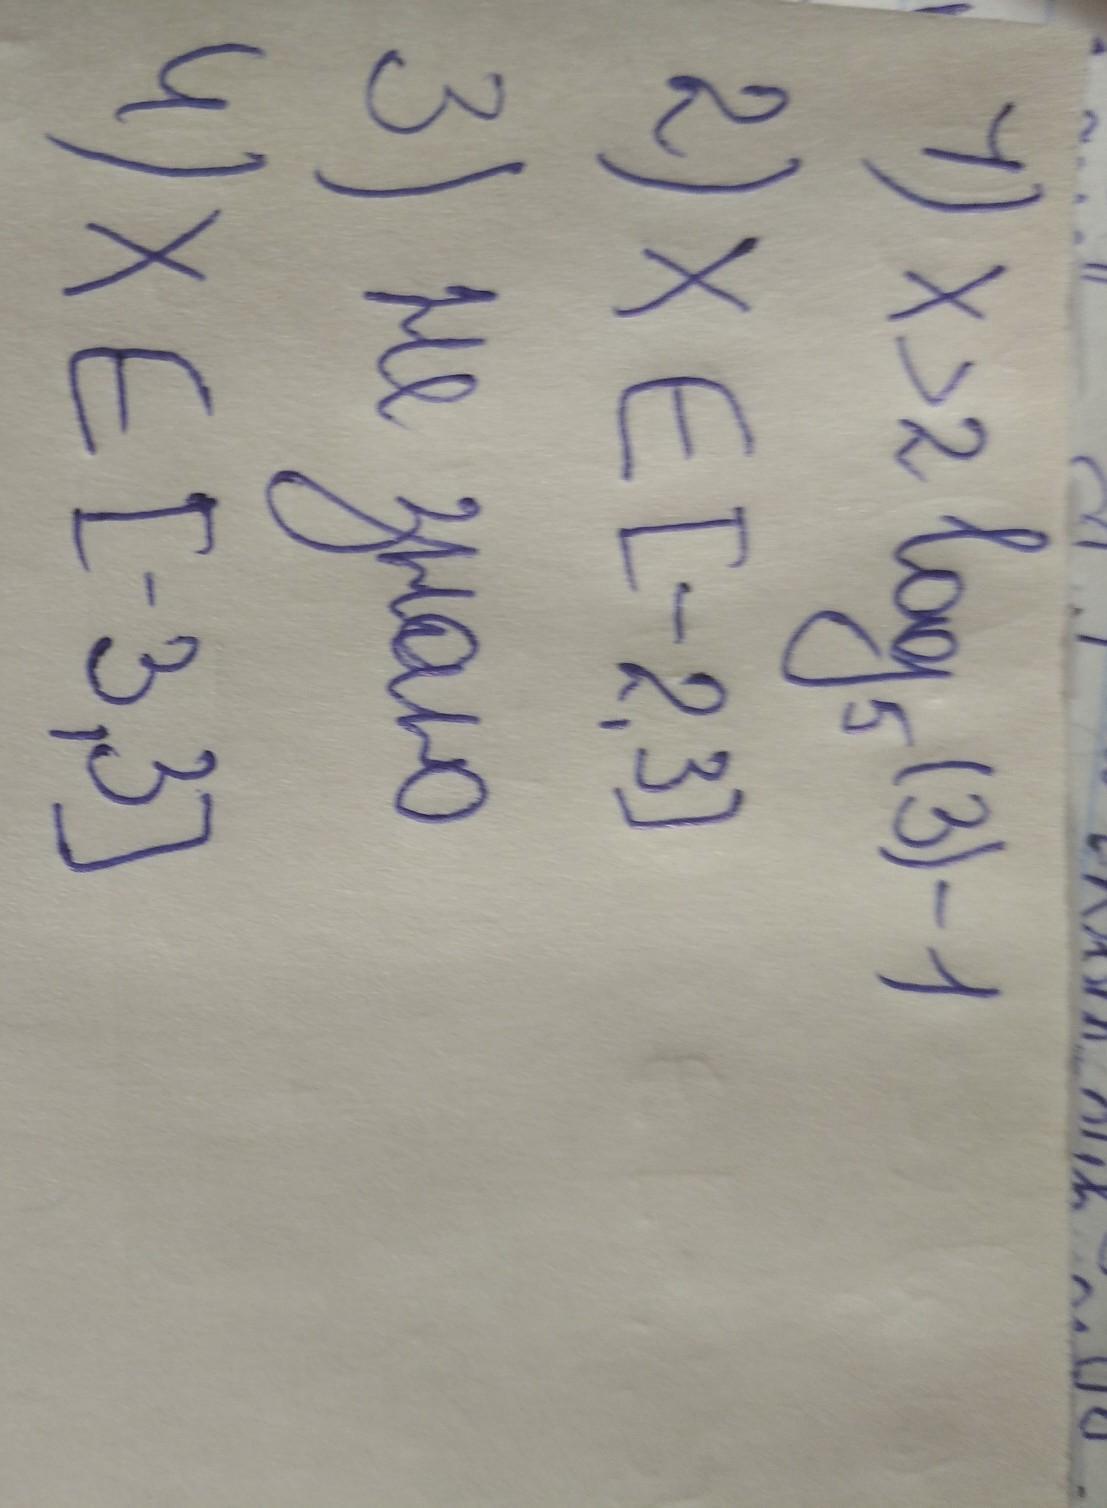 1) x>2 log₅(3)-1
2) X E [-2,3]
3) не знаю
4) X E [-3,3]